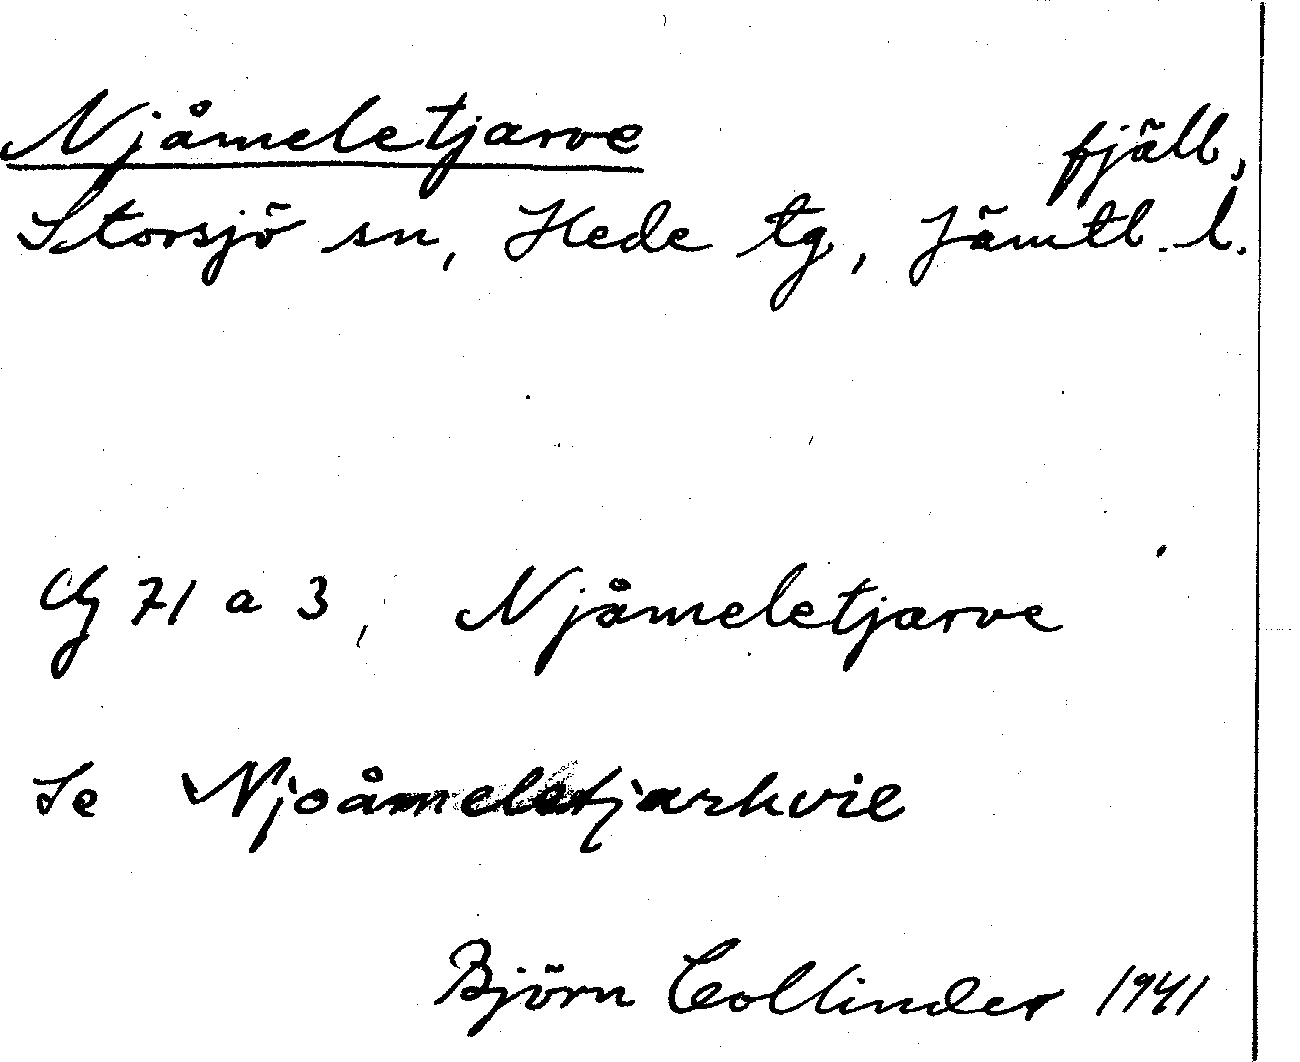 Njåmeletjarve fjäll,
Storsjö sn, Hede tg, Jämtl. l.
71 a 3, Njåmeletjarve
Se Njoåmeletjarhvie
Björn Collinder 1941